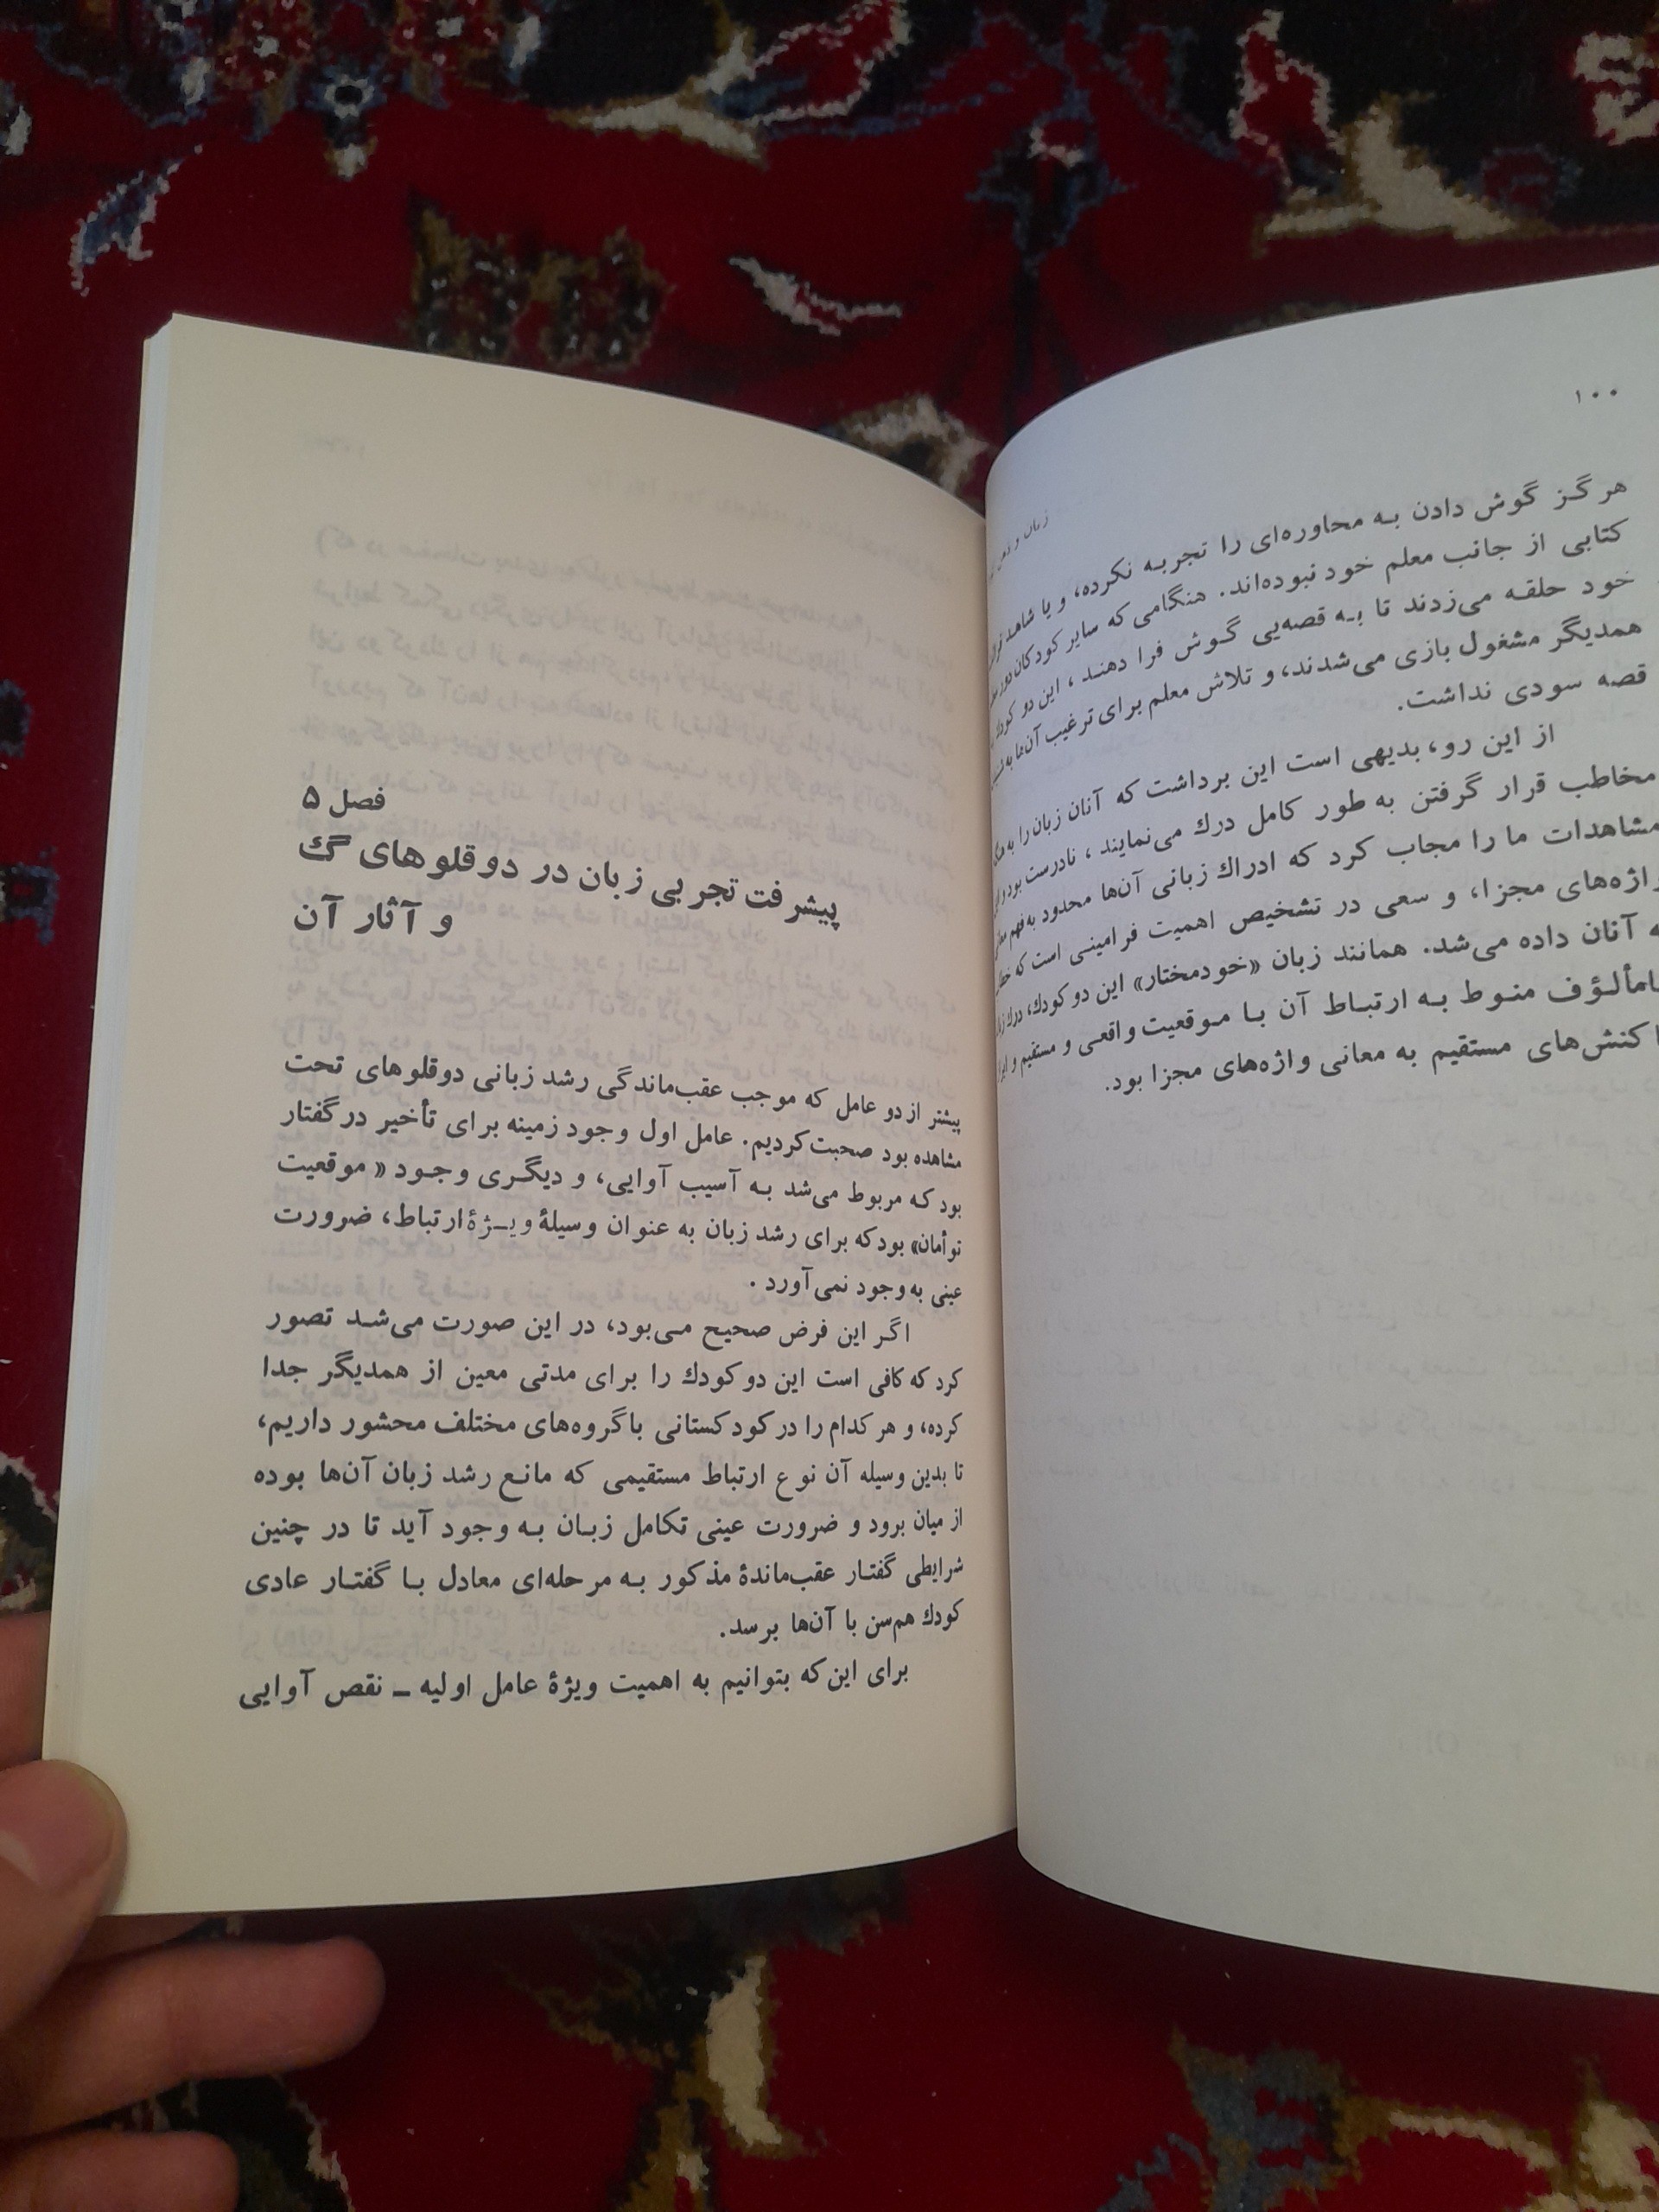 ۱۰۰
زبان و
هرگز گوش دادن به محاوره‌ای را تجربه نکرده، و یا شاهد
کتابی از جانب معلم خود نبوده‌اند. هنگامی که سایر کودکان دور
خود حلقه می‌زدند تا به قصه‌یی گوش فرا دهند، این دو
همدیگر مشغول بازی می‌شدند، و تلاش معلم برای ترغیب آن‌ها به
قصه سودی نداشت.
از این رو، بدیهی است این برداشت که آنان زبان را به
مخاطب قرار گرفتن به طور کامل درك می‌نمایند، نادرست بود و
مشاهدات ما را مجاب کرد که ادراك زبانی آن‌ها محدود به فهم
واژه‌های مجزا، و سعی در تشخیص اهمیت فرامینی است که
آنان داده می‌شد. همانند زبان «خودمختار» این دو کودك، درك
منوط به ارتباط آن با موقعیت واقعی و مستقیم و
کنش‌های مستقیم به معانی واژه‌های مجزا بود.
فصل ۵
پیشرفت تجربی زبان در دوقلوهای گ
و آثار آن
پیشتر از دو عامل که موجب عقب‌ماندگی رشد زبانی دوقلوهای تحت
مشاهده بود صحبت کردیم. عامل اول وجود زمینه برای تأخیر در گفتار
بود که مربوط می‌شد به آسیب آوایی، و دیگری وجود «موقعیت
توأمان» بود که برای رشد زبان به عنوان وسیلهٔ ویژهٔ ارتباط، ضرورت
عینی به وجود نمی‌آورد.
اگر این فرض صحیح می‌بود، در این صورت می‌شد تصور
کرد که کافی است این دو کودك را برای مدتی معین از همدیگر جدا
کرده، و هر کدام را در کودکستانی با گروه‌های مختلف محشور داریم،
تا بدین وسیله آن نوع ارتباط مستقیمی که مانع رشد زبان آن‌ها بوده
از میان برود و ضرورت عینی تکامل زبان به وجود آید تا در چنین
شرایطی گفتار عقب‌ماندهٔ مذکور به مرحله‌ای معادل با گفتار عادی
کودك هم‌سن با آن‌ها برسد.
برای این‌که بتوانیم به اهمیت ویژهٔ عامل اولیه ـ نقص آوایی